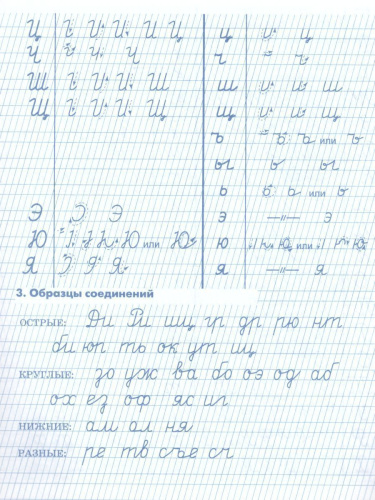 Ц Ц ц ц
Ч Ч ч ч
Ш Ш ш ш
Щ Щ щ щ
ъ ъ ъ или ъ
ы ы ы
ь ь ь или ь
Э Э э —„— э
Ю Ю или Ю ю ю или ю
Я Я я —„— я
3. Образцы соединений
ОСТРЫЕ: Ди Ри шц гр др рю нт
би юп ть ок ут щ
КРУГЛЫЕ: зо уж ва бо оэ од аб
ох ез оф яс иг
НИЖНИЕ: ам ол ня
РАЗНЫЕ: ре тв съе сч